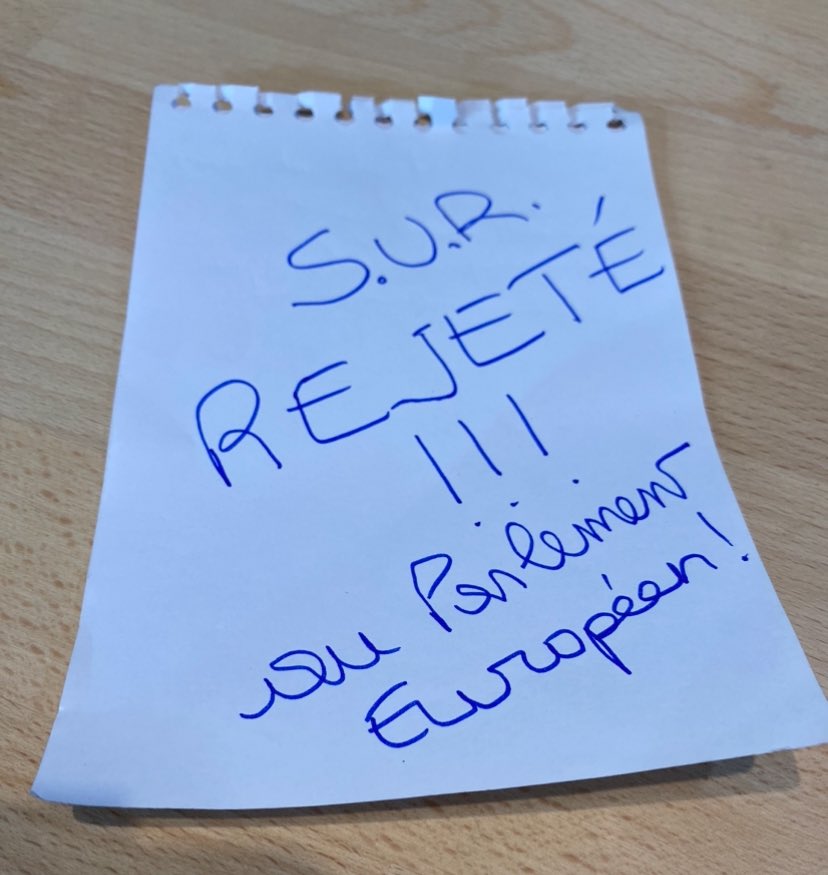 S.U.R.
REJETÉ
!!!
au Parlement
Européen!